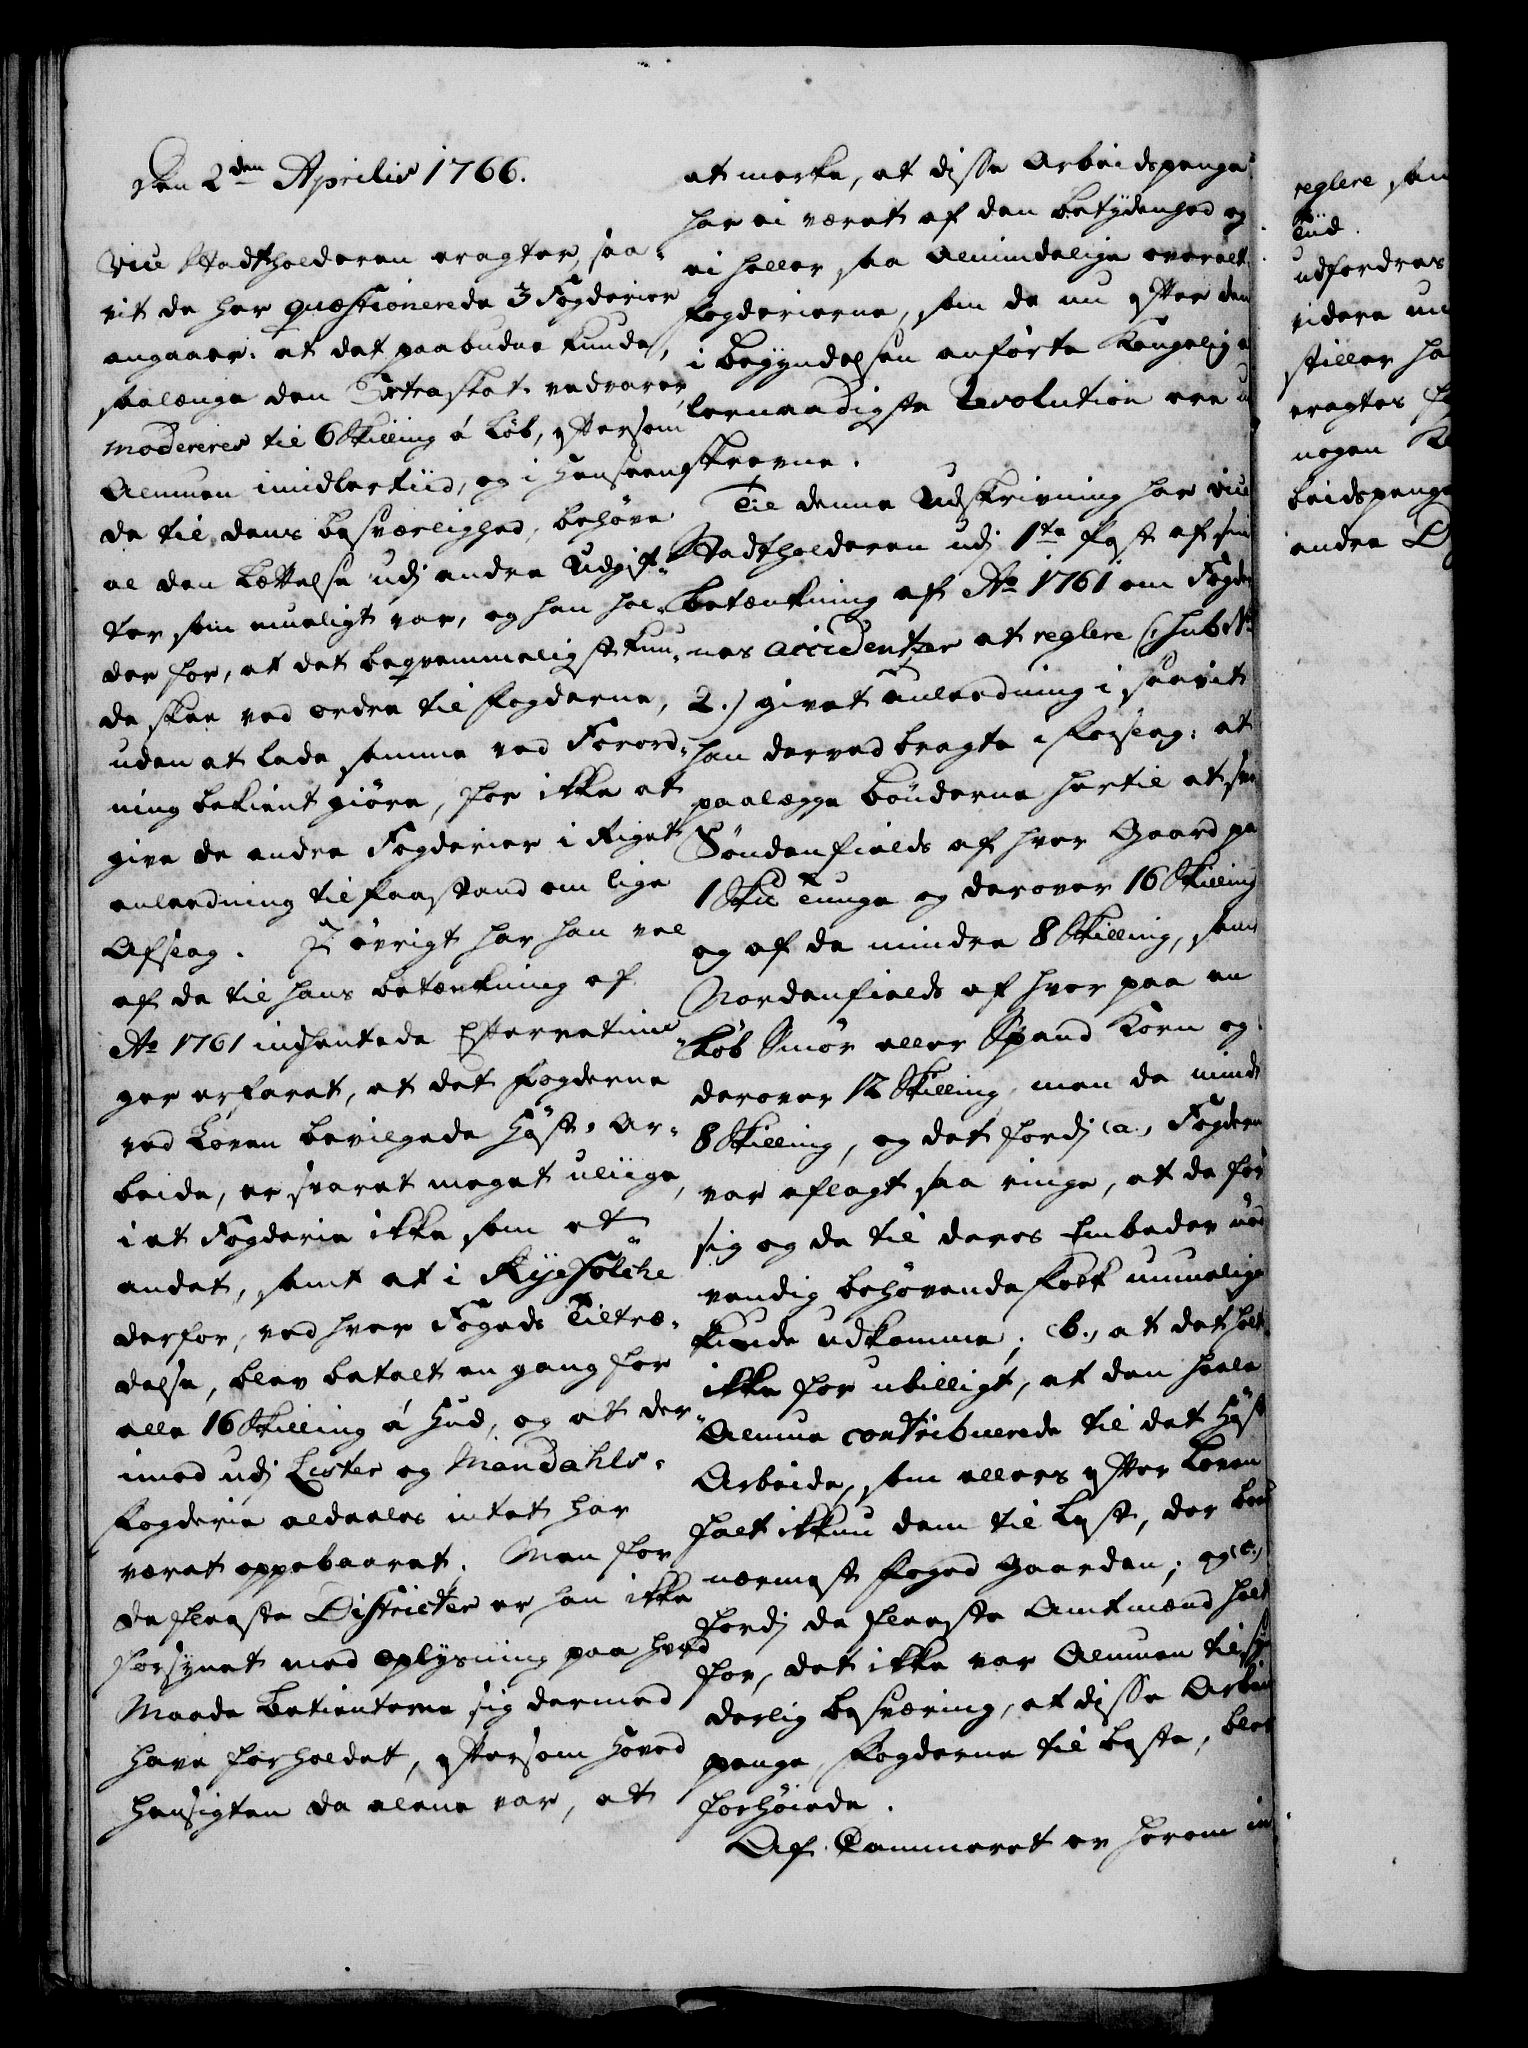 Den 2den Aprilis 1766.
Vice Stadtholderen eragter, saa-
vit de her qvæstionerede 3 Fogderier
angaaer: at det paabudne kunde,
saalænge den Extraskat vedvarer,
modereres til 6 Skilling á Løb, eftersom
Almuen imidlertiid, og i Henseen-
de til dens besværlighed, behøve
al den Lættelse udj andre Udgif-
ter som mueligt var, og han hol-
der for, at det beqvemmeligst kun-
de skee ved ordre til Fogderne,
uden at lade samme ved Forord-
ning bekient giøre, for ikke at
give de andre Fogderier i Riget
anleedning til Paastand om lige
Afslag. I øvrigt har han vel
af de til hans betænkning af
Ao 1761 indhentede Efterretnin-
ger erfaret, at det Fogderne
ved Loven bevilgede Høst-Ar-
beide, er svaret meget uliige,
i et Fogderie ikke som et
andet, samt at i Ryefölche
derfor, ved hver Fogeds Tiltræ-
delse, blev betalt en gang for
alle 16 Skilling á Hud, og at der-
imod udj Lister og Mandahls-
Fogderie aldeeles intet har
været oppebaaret; Men for
de fleeste Districter er han ikke
forsynet med Oplysning paa hvad
Maade Betienterne sig dermed
have forholdet, eftersom Hoved
Hensigten da alene var, at
at merke, at disse Arbeidspenge
har ei været af den betydenhed og
ei heller saa Almindelige overalt i
Fogderierne, som de nu efter den
i begyndelsen anførte Kongelig al-
lernaadigste Resolution ere ud-
skrevne.
Til denne Udskrivning har Vice
Stadtholderen udj 1te Post af sin
betænkning af Ao 1761 om Fogder-
nes accidentzer at reglere (: sub No
2.) givet Anleedning i saavit
han derved bragte i Forslag: at
paalægge bønderne hertil at svare
Søndenfields af hver Gaard paa
1 Skil Tunge og derover 16 Skilling
og af de mindre 8 Skilling, samt
Nordenfields af hver paa en
Løb Smør eller Spand Korn og
derover 12 Skilling, men de mindre
8 Skilling, og det fordj (a.) Fogderne
var aflagt saa ringe, at de for
sig og de til deres Embeder nød-
vendig behøvende Folk umuelig
kunde udkomme; (b.) at det holdtes
ikke for ubilligt, at den heele
Almue contribuerede til det Høst
Arbeide, som ellers efter Loven
falt ikkun dem til Last, der boede
nærmest Foged Gaarden; og (c.)
fordj de fleeste Amtmænd holdt
for, det ikke var Almuen til syn-
derlig besværing, at disse Arbeids
penge, Fogderne til beste, blev
forhøiede.
Af Cammeret er herom in
reglere sam
Tiid.
udfordres
videre un
stiller ha
eragtes f
nogen K
beidspenge
andre D